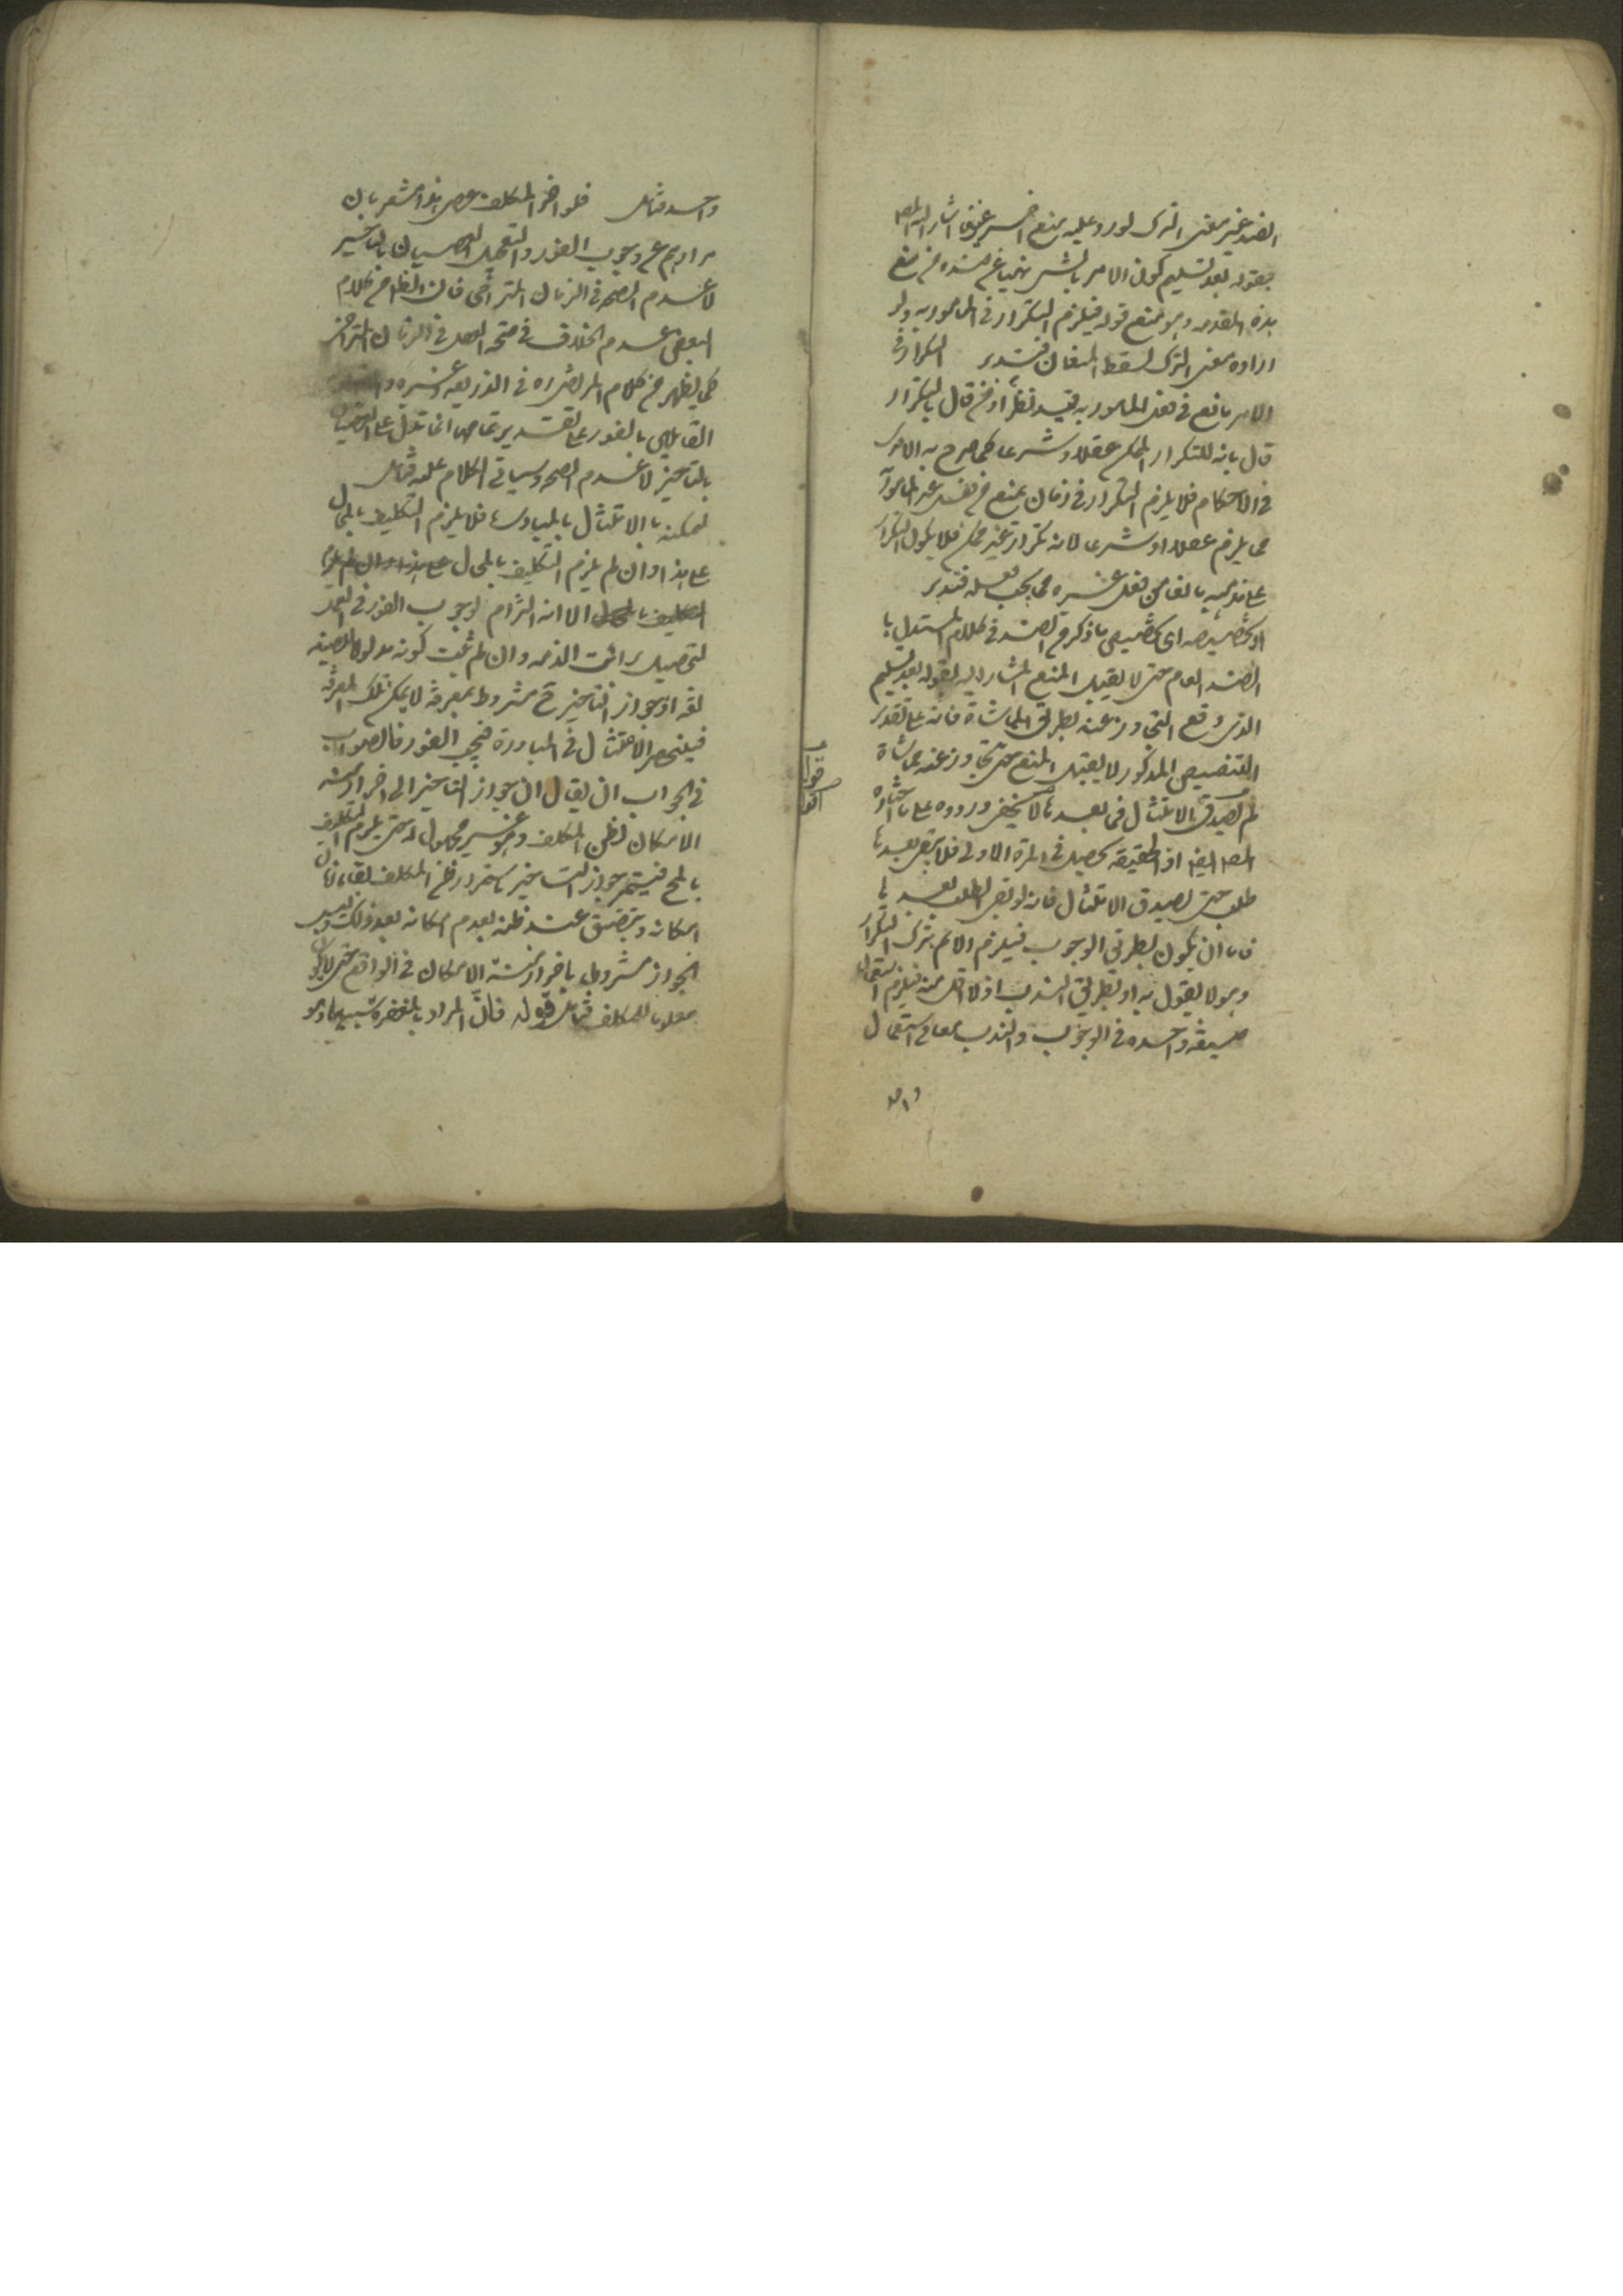 الضد غير معنى الترك لورود عليه منع اخر غير ما اشار اليه المص
بقوله بعد تسليم كون الامر بالشيء نهيا عن ضده من منع
هذه المقدمه وهو منع قوله فيلزم التكرار في المامور به ولو
اراده معنى الترك لسقط المنعان فتدبر التكرار في
الامر مانع من فعل المامور به فيه نظر اذ من قال بالتكرار
قال بانه للتكرار الممكن عقلا وشرعا كما صرح به الامدى
في الاحكام فلا يلزم التكرار في زمان يمنع من فعل غير المامور
مما يلزم عقلا او شرعا لانه تكرار غير ممكن فلا يكون التكرار
على مذهبه مانعا من فعل غيره مما يجب فعله فتدبر
او تخصيصه اى تخصيص ما ذكر من الضد في كلام المستدل با
الضد العام حتى لا يقبل المنع المشار اليه بقوله بعد تسليم
الذى وقع التجاوز عنه بطريق المماشاة فانه على تقدير
التخصيص المذكور لا يقبل المنع حتى يتجاوز عنه مماشاة
لم يصدق الامتثال فيما بعدها لا يخفى وروده على ما اختاره
المص ايضا اذ الحقيقة تحصل في المرة الاولى فلا يبقى بعدها
طلب حتى يصدق الامتثال فانه لو بقى الطلب بعدها
فاما ان يكون بطريق الوجوب فيلزم الاثم بترك التكرار
وهو لا يقول به او بطريق الندب اذ لا اقل منه فيلزم استعمال
صيغة واحده في الوجوب والندب معا في استعمال
واحد
واحد فتامل فلو اخر المكلف عصى هذا مشعر بان
مرادهم من وجوب الفور والتعجيل العصيان بالتاخير
لا عدم الصحه في الزمان المتراخى فان الظاهر من كلام
البعض عدم الخلاف في صحة الفعل في الزمان المتراخى
كما يظهر من كلام المرتضى ره في الذريعه وغيره
القايلين بالفور على تقدير تمامها انما تدل على العصيان
بالتاخير لا عدم الصحه وسياتى الكلام عليه فتامل
لتمكنه بالامتثال بالمبادرة فلا يلزم التكليف بالمحال
على هذا وان لم يلزم التكليف بالمحال على هذا وان لم يلزم
التكليف بالمحال الا انه التزام لوجوب الفور في العمل
لتحصيل برائت الذمه وان لم يثبت كونه مدلولا للصيغه
لغة اذ جواز التاخير ح مشروط بمعرفة لا يمكن تلك المعرفة
فينحصر الامتثال في المبادرة فيجب الفور فالصواب
في الجواب ان يقال ان جواز التاخير الى اخر ازمنه
الامكان بظن المكلف وهو غير مجهول له حتى يلزم التكليف
بالمح فيستمر جواز التاخير باستمرار ظن المكلف بقاء زمان
امكانه ويتضيق عند ظنه بعدم امكانه بعد ذلك وليس
الجواز مشروطا باخر ازمنة الامكان في الواقع حتى لا يكون
معلوما للمكلف فتامل قوله فان المراد بالمغفرة سببها وهو